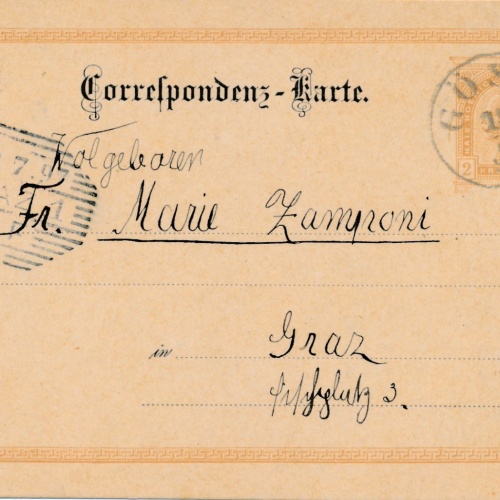 Correspondenz-Karte.
Wolgeboren
Fr. Marie Zamponi
in Graz
3.
GÖ
2